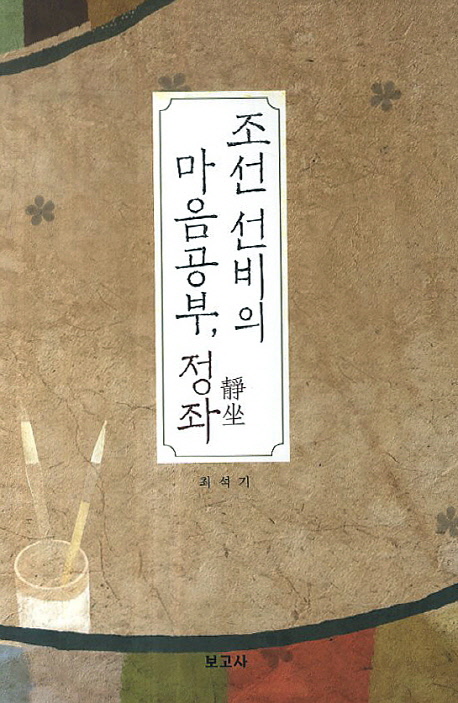 조선 선비의
마음공부, 정좌
靜坐
최석기
보고사